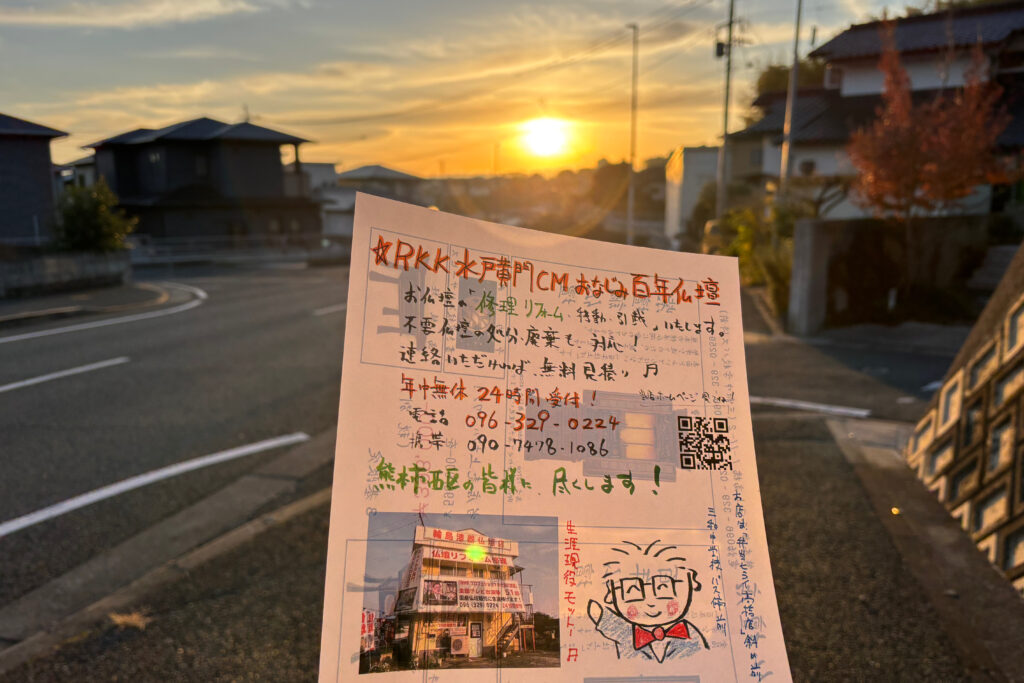 ☆RKK水戸黄門CMおなじみ百年仏壇
お仏壇の「修理リフォーム・移動・引越」いたします。
不要仏壇の処分、廃棄も対応!
連絡いただければ、無料見積り
年中無休 24時間受付!
電話 096-329-0224
携帯 090-7478-1086
熊本市西区の皆様に、尽くします!
輪島漆器仏壇店
仏壇リフォーム
096(329)0224
生涯現役モットー!